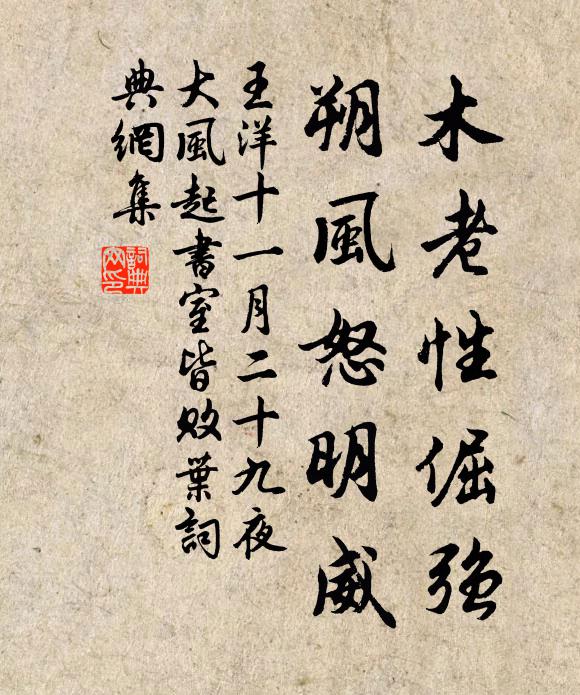 木老性倔强
朔風怒明威
王洋十一月二十九夜
大風起書室皆敗葉詞
典網集